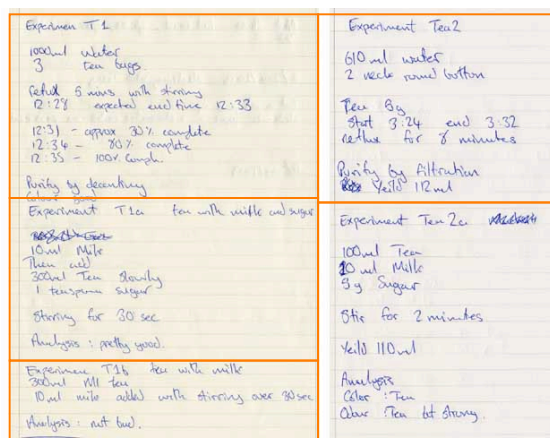 Experimen T1
1000ml water
3 tea bags
reflux 5 mins with stirring
12:28 expected end time 12:33
12:31 - approx 30% complete
12:34 - 80% complete
12:35 - 100% comple.
Purify by decanting
Colour good
Experiment T1a tea with milk and sugar
10ml Milk
Then add
300ml Tea slowly
1 teaspoon sugar
Stirring for 30 sec
Analysis : pretty good.
Experimen T1b tea with milk
300ml Ml tea
10ml milk added with stirring over 30sec
Analysis : not bad.
Experiment Tea2
610 ml water
2 neck round bottom
Tea 8g
Start 3:24 end 3:32
reflux for 8 minutes
Purify by filtration
Yeild 112ml
Experiment Tea 2a
100ml Tea
10 ml Milk
9g Sugar
Stir for 2 minutes
Yeild 110ml
Analysis
Color : Tea
Odour : Tea bit strong.